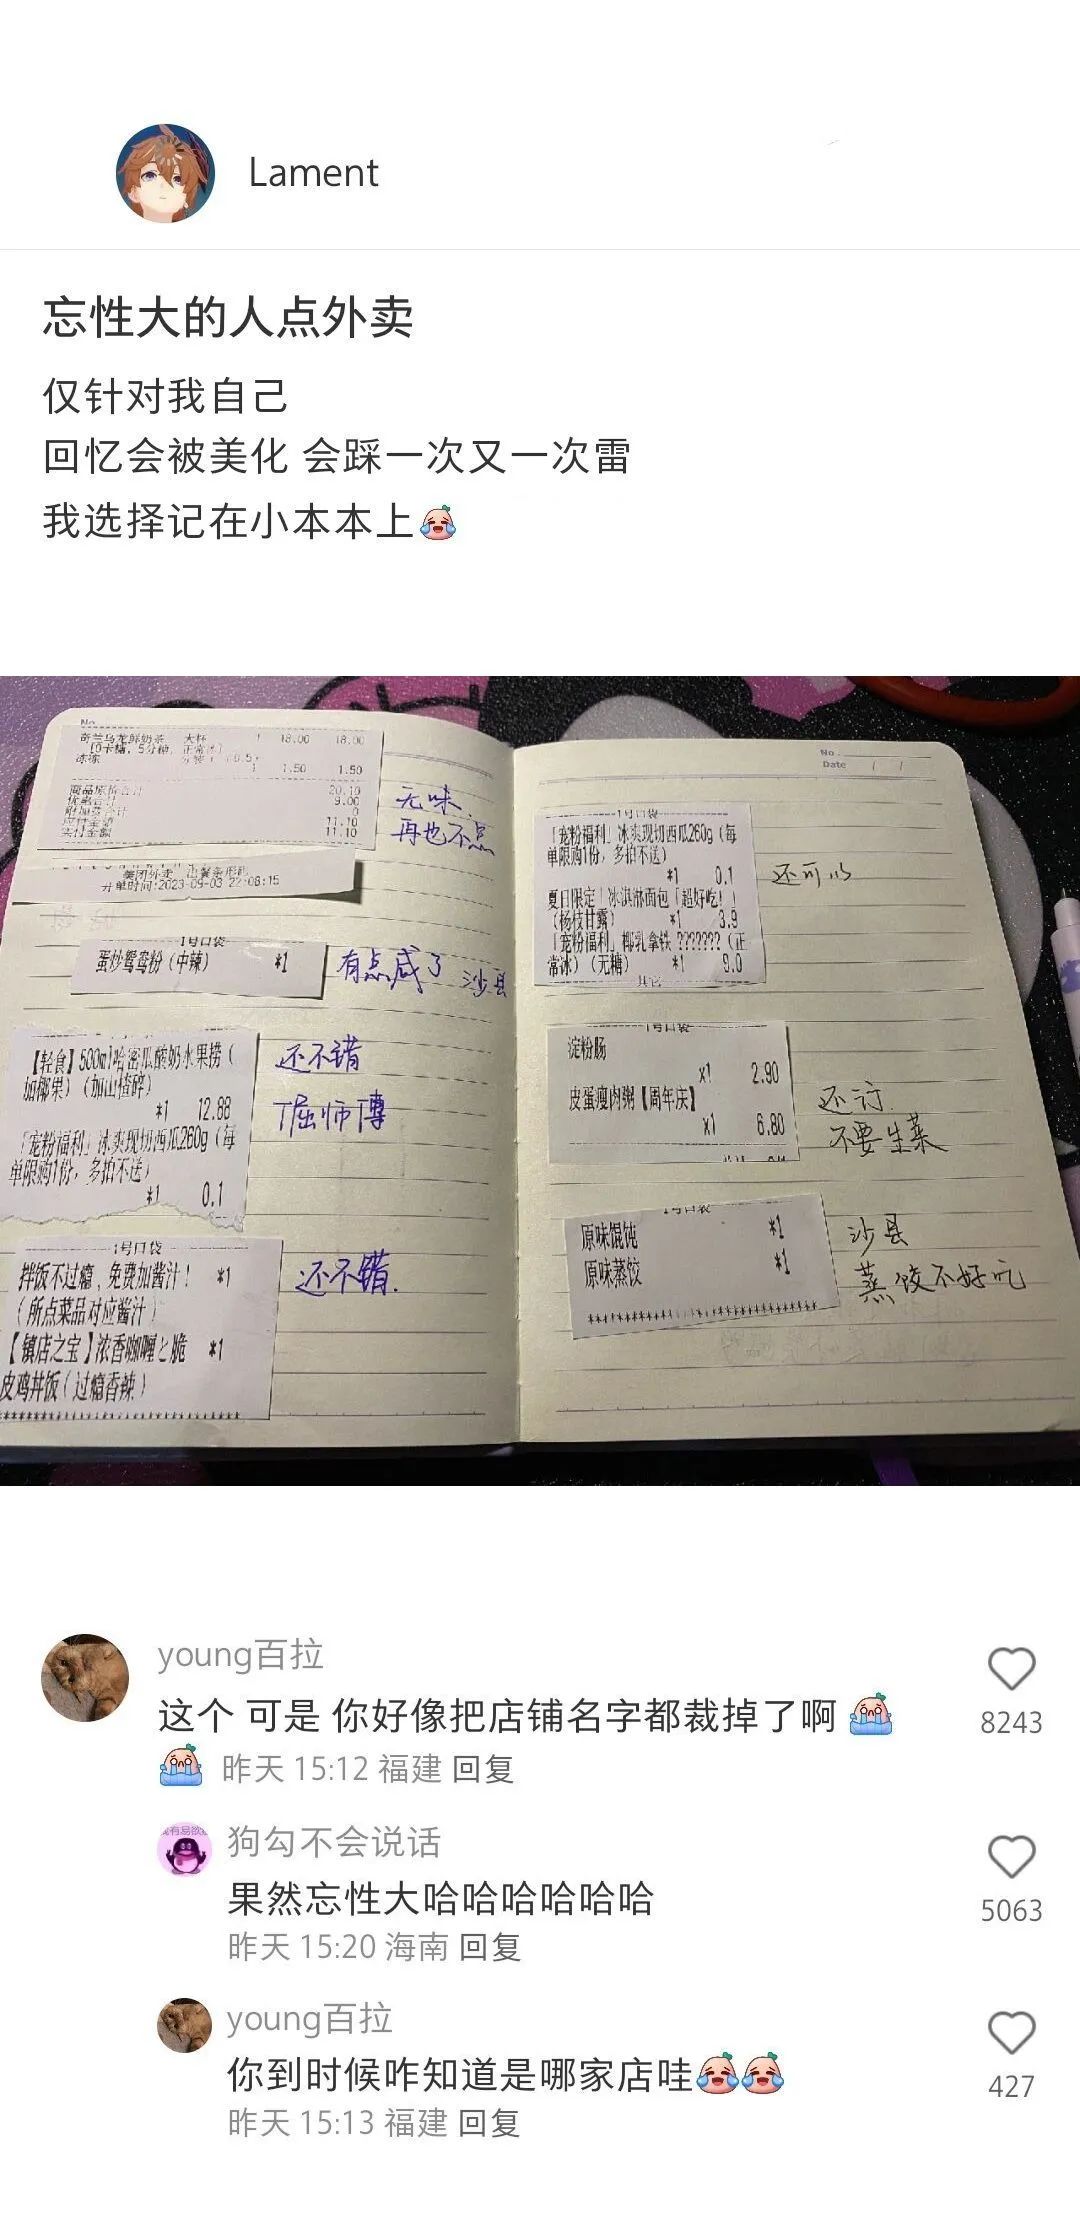 Lament
忘性大的人点外卖
仅针对我自己
回忆会被美化 会踩一次又一次雷
我选择记在小本本上
No.
奇兰乌龙鲜奶茶 大杯 1 18.00 18.00
冻冻
1 1.50 1.50
商品原价合计 20.10
优惠合计 9.00
附加费合计 0
应付金额 11.10
实付金额 11.10
无味
再也不点
美团外卖
开单时间:2023-09-03 22:08:15
1号口袋
蛋炒鸳鸯粉(中辣) *1
有点咸了 沙县
【轻食】500ml哈密瓜酸奶水果捞(
加椰果)(加山楂碎)
*1 12.88
「宠粉福利」冰爽现切西瓜260g(每
单限购1份，多拍不送)
*1 0.1
还不错
1号口袋
拌饭不过瘾，免费加酱汁! *1
(所点菜品对应酱汁)
【镇店之宝】浓香咖喱と脆 *1
皮鸡丼饭(过瘾香辣)
还不错.
No.
Date / /
1号口袋
「宠粉福利」冰爽现切西瓜260g(每
单限购1份，多拍不送)
*1 0.1
夏日限定「冰淇淋面包「超好吃！！
(杨枝甘露) *1 3.9
「宠粉福利」椰乳拿铁 ???????(正
常冰)(无糖) *1 9.0
其它
还可以
1号口袋
淀粉肠
x1 2.90
皮蛋瘦肉粥【周年庆】
x1 6.80
还行
不要生菜
1号口袋
原味馄饨 *1
原味蒸饺 *1
沙县
蒸饺不好吃
young百拉
这个 可是 你好像把店铺名字都裁掉了啊
昨天 15:12 福建 回复
8243
狗勾不会说话
果然忘性大哈哈哈哈哈哈
昨天 15:20 海南 回复
5063
young百拉
你到时候咋知道是哪家店哇
昨天 15:13 福建 回复
427